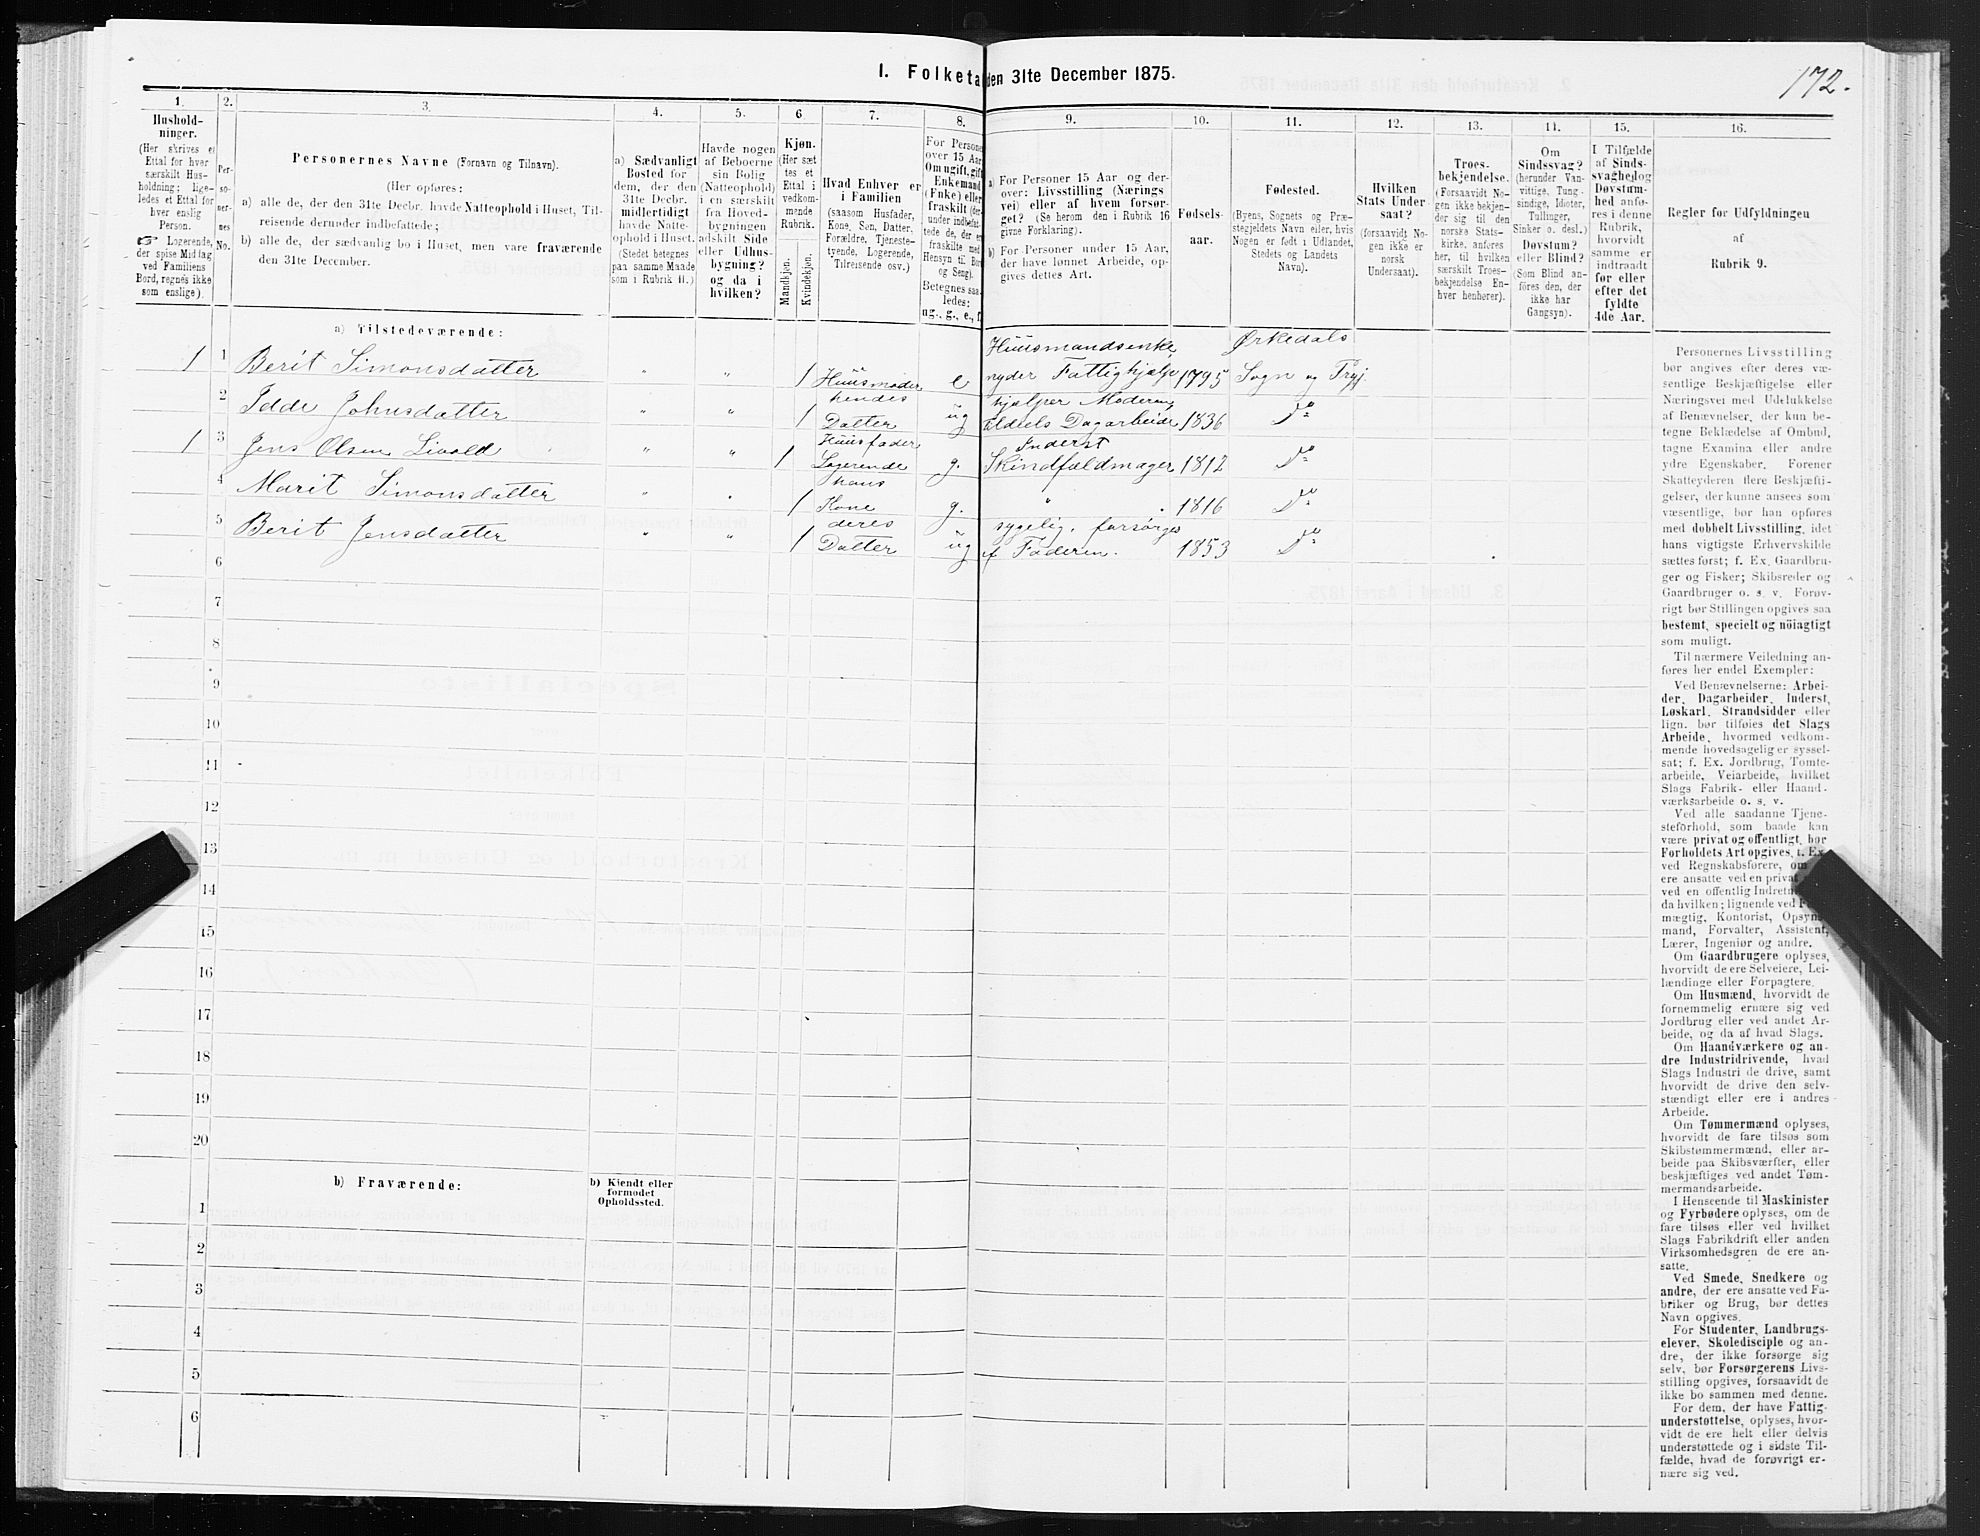 172.
I. Folketa den 31te December 1875.
1.
Hushold-
ninger.
(Her skrives et
Ettal for hver
særskilt Hus-
holdning; lige-
ledes et Ettal for
hver enslig
Person.
☞ Logerende,
der spise Middag
ved Familiens
Bord, regnes ikke
som enslige).
2.
Per-
so-
ner-
nes
No.
3.
Personernes Navne (Fornavn og Tilnavn).
(Her opføres:
a) alle de, der den 31te Decbr. havde Natteophold i Huset, Til-
reisende derunder indbefattede;
b) alle de, der sædvanlig bo i Huset, men vare fraværende
den 31te December.
4.
a) Sædvanligt
Bosted for
dem, der den
31te Decbr.
midlertidigt
havde Natte-
ophold i Huset.
(Stedet betegnes
paa samme Maade
som i Rubrik 11.)
5.
Havde nogen
af Beboerne
sin Bolig
(Natteophold)
i en særskilt
fra Hoved-
bygningen
adskilt Side
eller Udhus-
bygning?
og da i
hvilken?
6
Kjøn.
(Her sæt
tes et
Ettal i
vedkom-
mende
Rubrik.
Mandkjøn.
Kvindekjøn.
7.
Hvad Enhver er
i Familien
(saasom Husfader,
Kone, Søn, Datter,
Forældre, Tjeneste-
tyende, Logerende,
Tilreisende osv.)
8.
For Persone
over 15 Aar
Om ugift, gift
Enkemand
(Enke) eller
fraskilt (der-
under indbefat-
tede de, der er
fraskilte med
Hensyn til Bor
og Seng).
Betegnes saa-
ledes:
ug., g., e., f
9.
a) For Personer 15 Aar og der-
over: Livsstilling (Nærings
vei) eller af hvem forsør-
get? (Se herom den i Rubrik 16
givne Forklaring).
b) For Personer under 15 Aar,
der have lønnet Arbeide, op-
gives dettes Art.
10.
Fødsels-
aar.
11.
Fødested.
(Byens, Sognets og Præ-
stegjeldets Navn eller, hvis
Nogen er født i Udlandet,
Stedets og Landets
Navn).
12.
Hvilken
Stats Under
saat?
(forsaavidt No-
gen ikke er
norsk
Undersaat).
13.
Troes-
bekjendelse.
(Forsaavidt No-
gen ikke bekjen-
der sig til den
norske Stats-
kirke, anføres
her, til hvilken
særskilt Troes-
bekjendelse En-
hver henhører).
14.
Om
Sindssvag?
(herunder Van-
vittige, Tung-
sindige, Idioter,
Tullinger,
Sinker o. desl.)
Døvstum?
eller Blind?
(Som Blind an-
føres den, der
ikke har
Gangsyn).
15.
I Tilfælde
af Sinds-
svaghed og
Døvstum-
hed anfø-
res i denne
Rubrik,
hvorvidt
samme er
indtraadt
før eller
efter det
fyldte
4de Aar.
16.
Regler for Udfyldningen
af
Rubrik 9.
a) Tilstedeværende:
1 1 Berit Simonsdatter " " 1 Huusmoder e Huusmandsenke nyder Fattighjælp 1795 Ørkedals Sogn og Prgj.
2 Idde Johnsdatter " " 1 hendes Datter ug hjælper Moderen tildeels Dagarbeide 1836 Do
1 3 Jens Olsen Sivold " " 1 Huusfader Logerende g. Inderst Skindfældmager 1812 Do
4 Marit Simonsdatter " " 1 hans Kone g. " 1816 Do
5 Berit Jensdatter " " 1 deres Datter ug sygelig, forsørges af Faderen. 1853 Do
6
7
8
9
10
11
12
13
14
15
16
17
18
19
20
b) Fraværende:
b) Kjendt eller
formodet
Opholdssted.
1
2
3
4
5
6
Personernes Livsstilling
bør angives efter deres væ-
sentlige Beskjæftigelse eller
Næringsvei med Udelukkelse
af Benævnelser, der kun be-
tegne Beklædelse af Ombud,
tagne Examina eller andre
ydre Egenskaber. Forener
Skatteyderen flere Beskjæfti-
gelser, der kunne ansees som
væsentlige, bør han opføres
med dobbelt Livsstilling, idet
hans vigtigste Erhvervskilde
sættes først; f. Ex. Gaardbru-
ger og Fisker; Skibsreder og
Gaardbruger o. s. v. Forøv-
rigt bør Stillingen opgives saa
bestemt, specielt og nöiagtigt
som muligt.
Til nærmere Veiledning an-
føres her endel Exempler:
Ved Benævnelserne: Arbei-
der, Dagarbeider, Inderst,
Løskarl, Strandsidder eller
lign. bør tilføies det Slags
Arbeide, hvormed vedkom-
mende hovedsagelig er syssel-
sat; f. Ex. Jordbrug, Tomte-
arbeide, Veiarbeide, hvilket
Slags Fabrik- eller Haand-
værksarbeide o. s. v.
Ved alle saadanne Tjene-
steforhold, som baade kan
være privat og offentligt, bør
Forholdets Art opgives, f. Ex.
ved Regnskabsførere, om
ere ansatte ved en privat
ved en offentlig Indretn
da hvilken; lignende ved F
mægtig, Kontorist, Opsyns
mand, Forvalter, Assistent,
Lærer, Ingeniør og andre.
Om Gaardbrugere oplyses,
hvorvidt de ere Selveiere, Lei-
lændinge eller Forpagtere.
Om Husmænd, hvorvidt de
fornemmelig ernære sig ved
Jordbrug eller ved andet Ar-
beide, og da af hvad Slags.
Om Haandværkere og an-
dre Industridrivende, hvad
Slags Industri de drive, samt
hvorvidt de drive den selv-
stændigt eller ere i andres
Arbeide.
Om Tømmermænd oplyses,
hvorvidt de fare tilsøs som
Skibstømmermænd, eller ar-
beide paa Skibsværfter, eller
beskjæftiges ved andet Tøm-
mermandsarbeide.
I Henseende til Maskinister
og Fyrbødere oplyses, om de
fare tilsøs eller ved hvilket
Slags Fabrikdrift eller anden
Virksomhedsgren de ere an-
satte.
Ved Smede, Snedkere og
andre, der ere ansatte ved Fa-
briker og Brug, bør dettes
Navn opgives.
For Studenter, Landbrugs-
elever, Skoledisciple og an-
dre, der ikke forsørge sig
selv, bør Forsørgerens Livs-
stilling opgives, forsaavidt de
ikke bo sammen med denne.
For dem, der have Fattig-
understøttelse, oplyses, hvor-
vidt de ere helt eller delvis
understøttede og i sidste Til-
fælde, hvad de forøvrigt er-
nære sig ved.